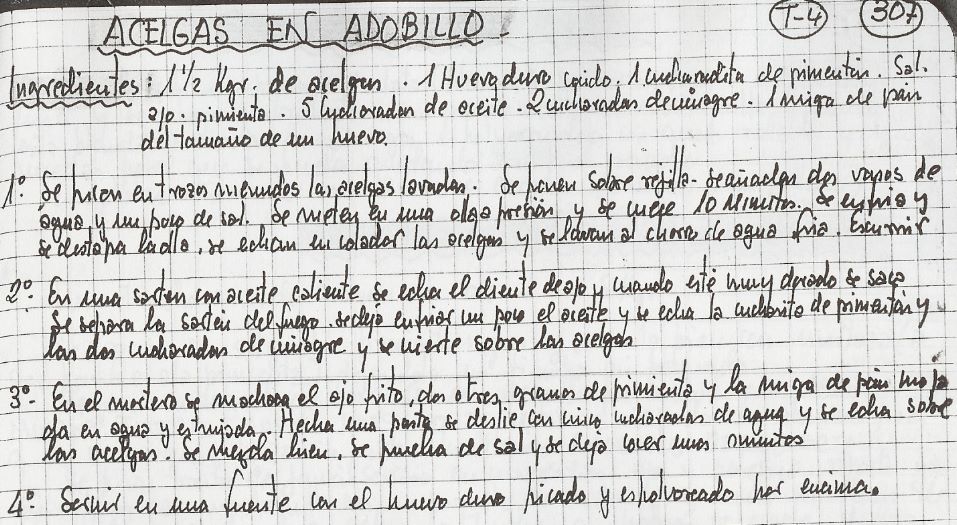 ACELGAS EN ADOBILLO.
T-4 307
Ingredientes: 1 1/2 Kgr. de acelgas. 1 Huevo duro cocido. 1 cucharadita de pimentón. Sal.
ajo. pimienta. 5 Cucharadas de aceite. 2 cucharadas de vinagre. 1 miga de pan
del tamaño de un huevo.
1º. Se pican en trozos menudos las acelgas lavadas. Se ponen sobre rejilla. Se añaden dos vasos de
agua y un poco de sal. Se meten en una olla a presión y se cuece 10 Minutos. Se enfria y
se destapa la olla, se echan en colador las acelgas y se lavan al chorro de agua fria. Escurrir
2º. En una sarten con aceite caliente se echa el diente de ajo y cuando esté muy dorado se saca
Se separa la sartén del fuego. se deja enfriar un poco el aceite y se echa la cucharita de pimentón y
las dos cucharadas de vinagre y se vierte sobre las acelgas
3º- En el mortero se machaca el ajo frito, dos o tres granos de pimienta y la miga de pan moja
da en agua y estrujada. Hecha una pasta se deslie con cinco cucharadas de agua y se echa sobre
las acelgas. Se mezcla bien. Se prueba de sal y se deja cocer unos minutos
4º- Servir en una fuente con el huevo duro picado y espolvoreado por encima.